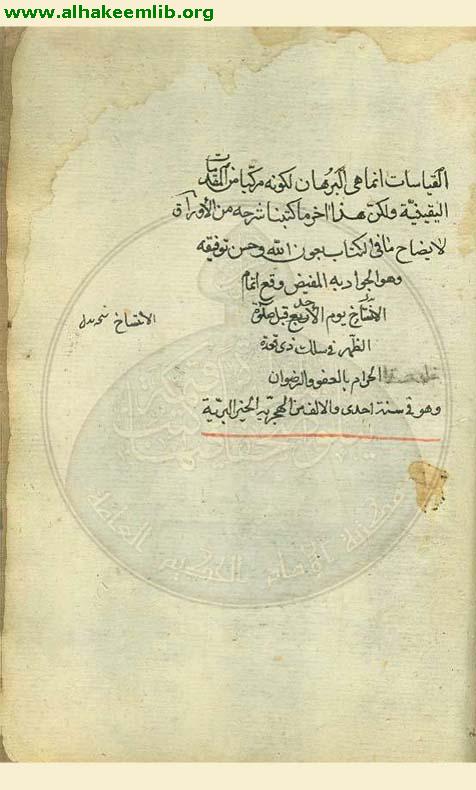 www.alhakeemlib.org
القياسات انما هي البرهان لكونه مركبا من المقدمات
اليقينية ولكن هذا اخر ما كتبنا شرحه من الأوراق
لايضاح ما في الكتاب بعون الله وحسن توفيقه
وهو الجواد به المفيض وقع اتمام
الانتساخ يوم الأربع قبل صلوة
الانتساخ نسخه بدل
الظهر في سلك ذي قعدة
الحرام بالعفو والرضوان
وهو في سنة احدى والالف من الهجرية الخير البرية